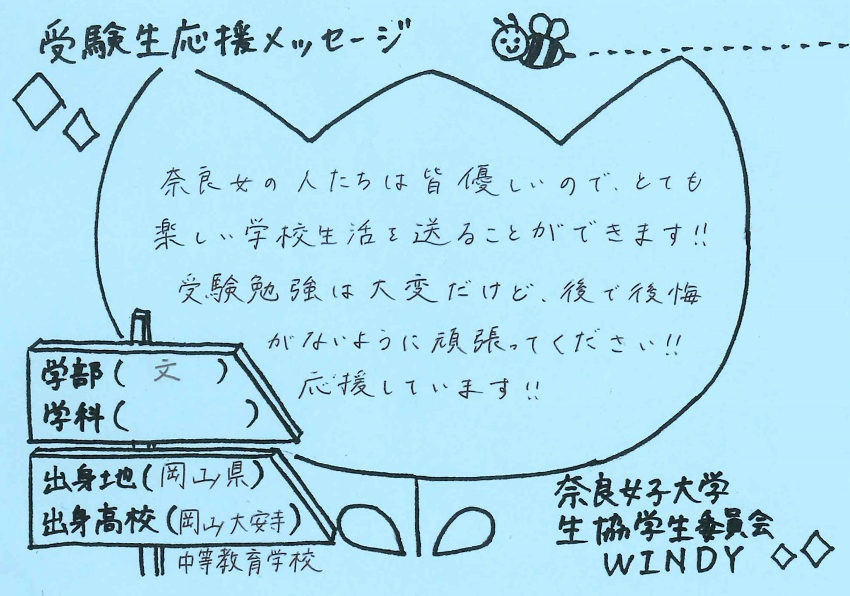 受験生応援メッセージ
奈良女の人たちは皆優しいので、とても
楽しい学校生活を送ることができます!!
受験勉強は大変だけど、後で後悔
がないように頑張ってください!!
応援しています!!
学部( 文 )
学科( )
出身地(岡山県)
出身高校(岡山大安寺)
中等教育学校
奈良女子大学
生協学生委員会
WINDY